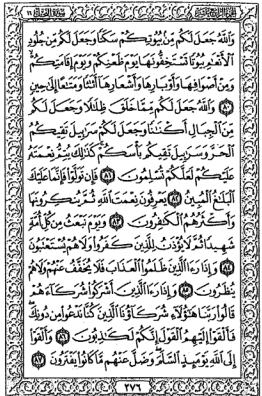 وَاللَّهُ جَعَلَ لَكُم مِّنۢ بُيُوتِكُمْ سَكَنًا وَجَعَلَ لَكُم مِّن جُلُودِ
الْأَنْعَٰمِ بُيُوتًا تَسْتَخِفُّونَهَا يَوْمَ ظَعْنِكُمْ وَيَوْمَ إِقَامَتِكُمْ
وَمِنْ أَصْوَافِهَا وَأَوْبَارِهَا وَأَشْعَارِهَآ أَثَٰثًا وَمَتَٰعًا إِلَىٰ حِينٍ
٨٠ وَاللَّهُ جَعَلَ لَكُم مِّمَّا خَلَقَ ظِلَٰلًا وَجَعَلَ لَكُم
مِّنَ الْجِبَالِ أَكْنَٰنًا وَجَعَلَ لَكُمْ سَرَٰبِيلَ تَقِيكُمُ
الْحَرَّ وَسَرَٰبِيلَ تَقِيكُم بَأْسَكُمْ كَذَٰلِكَ يُتِمُّ نِعْمَتَهُ
عَلَيْكُمْ لَعَلَّكُمْ تُسْلِمُونَ ٨١ فَإِن تَوَلَّوْا فَإِنَّمَا عَلَيْكَ
الْبَلَٰغُ الْمُبِينُ ٨٢ يَعْرِفُونَ نِعْمَتَ اللَّهِ ثُمَّ يُنكِرُونَهَا
وَأَكْثَرُهُمُ الْكَٰفِرُونَ ٨٣ وَيَوْمَ نَبْعَثُ مِن كُلِّ أُمَّةٍ
شَهِيدًا ثُمَّ لَا يُؤْذَنُ لِلَّذِينَ كَفَرُوا وَلَا هُمْ يُسْتَعْتَبُونَ
٨٤ وَإِذَا رَءَا الَّذِينَ ظَلَمُوا الْعَذَابَ فَلَا يُخَفَّفُ عَنْهُمْ وَلَا هُمْ
يُنظَرُونَ ٨٥ وَإِذَا رَءَا الَّذِينَ أَشْرَكُوا شُرَكَآءَهُمْ
قَالُوا رَبَّنَا هَٰٓؤُلَآءِ شُرَكَآؤُنَا الَّذِينَ كُنَّا نَدْعُوا مِن دُونِكَ
فَأَلْقَوْا إِلَيْهِمُ الْقَوْلَ إِنَّكُمْ لَكَٰذِبُونَ ٨٦ وَأَلْقَوْا
إِلَى اللَّهِ يَوْمَئِذٍ السَّلَمَ وَضَلَّ عَنْهُم مَّا كَانُوا يَفْتَرُونَ ٨٧
٢٧٦